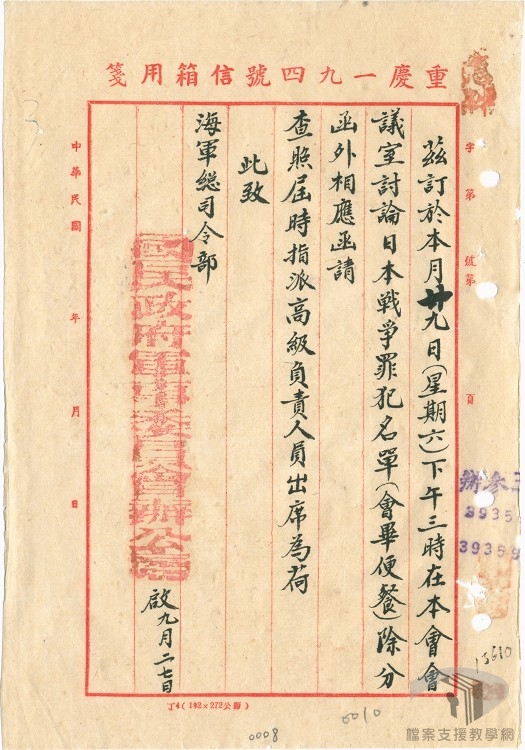 重慶一九四號信箱用箋
字第　號第　頁
茲訂於本月廿九日(星期六)下午三時在本會會
議室討論日本戰爭罪犯名單(會畢便餐)除分
函外相應函請
查照屆時指派高級負責人員出席為荷
此致
海軍總司令部
國民政府軍事委員會辦公廳
啟九月二七日
中華民國　年　月　日
丁4(192×272公厘)
0008
0010
13610
檔案支援教學網